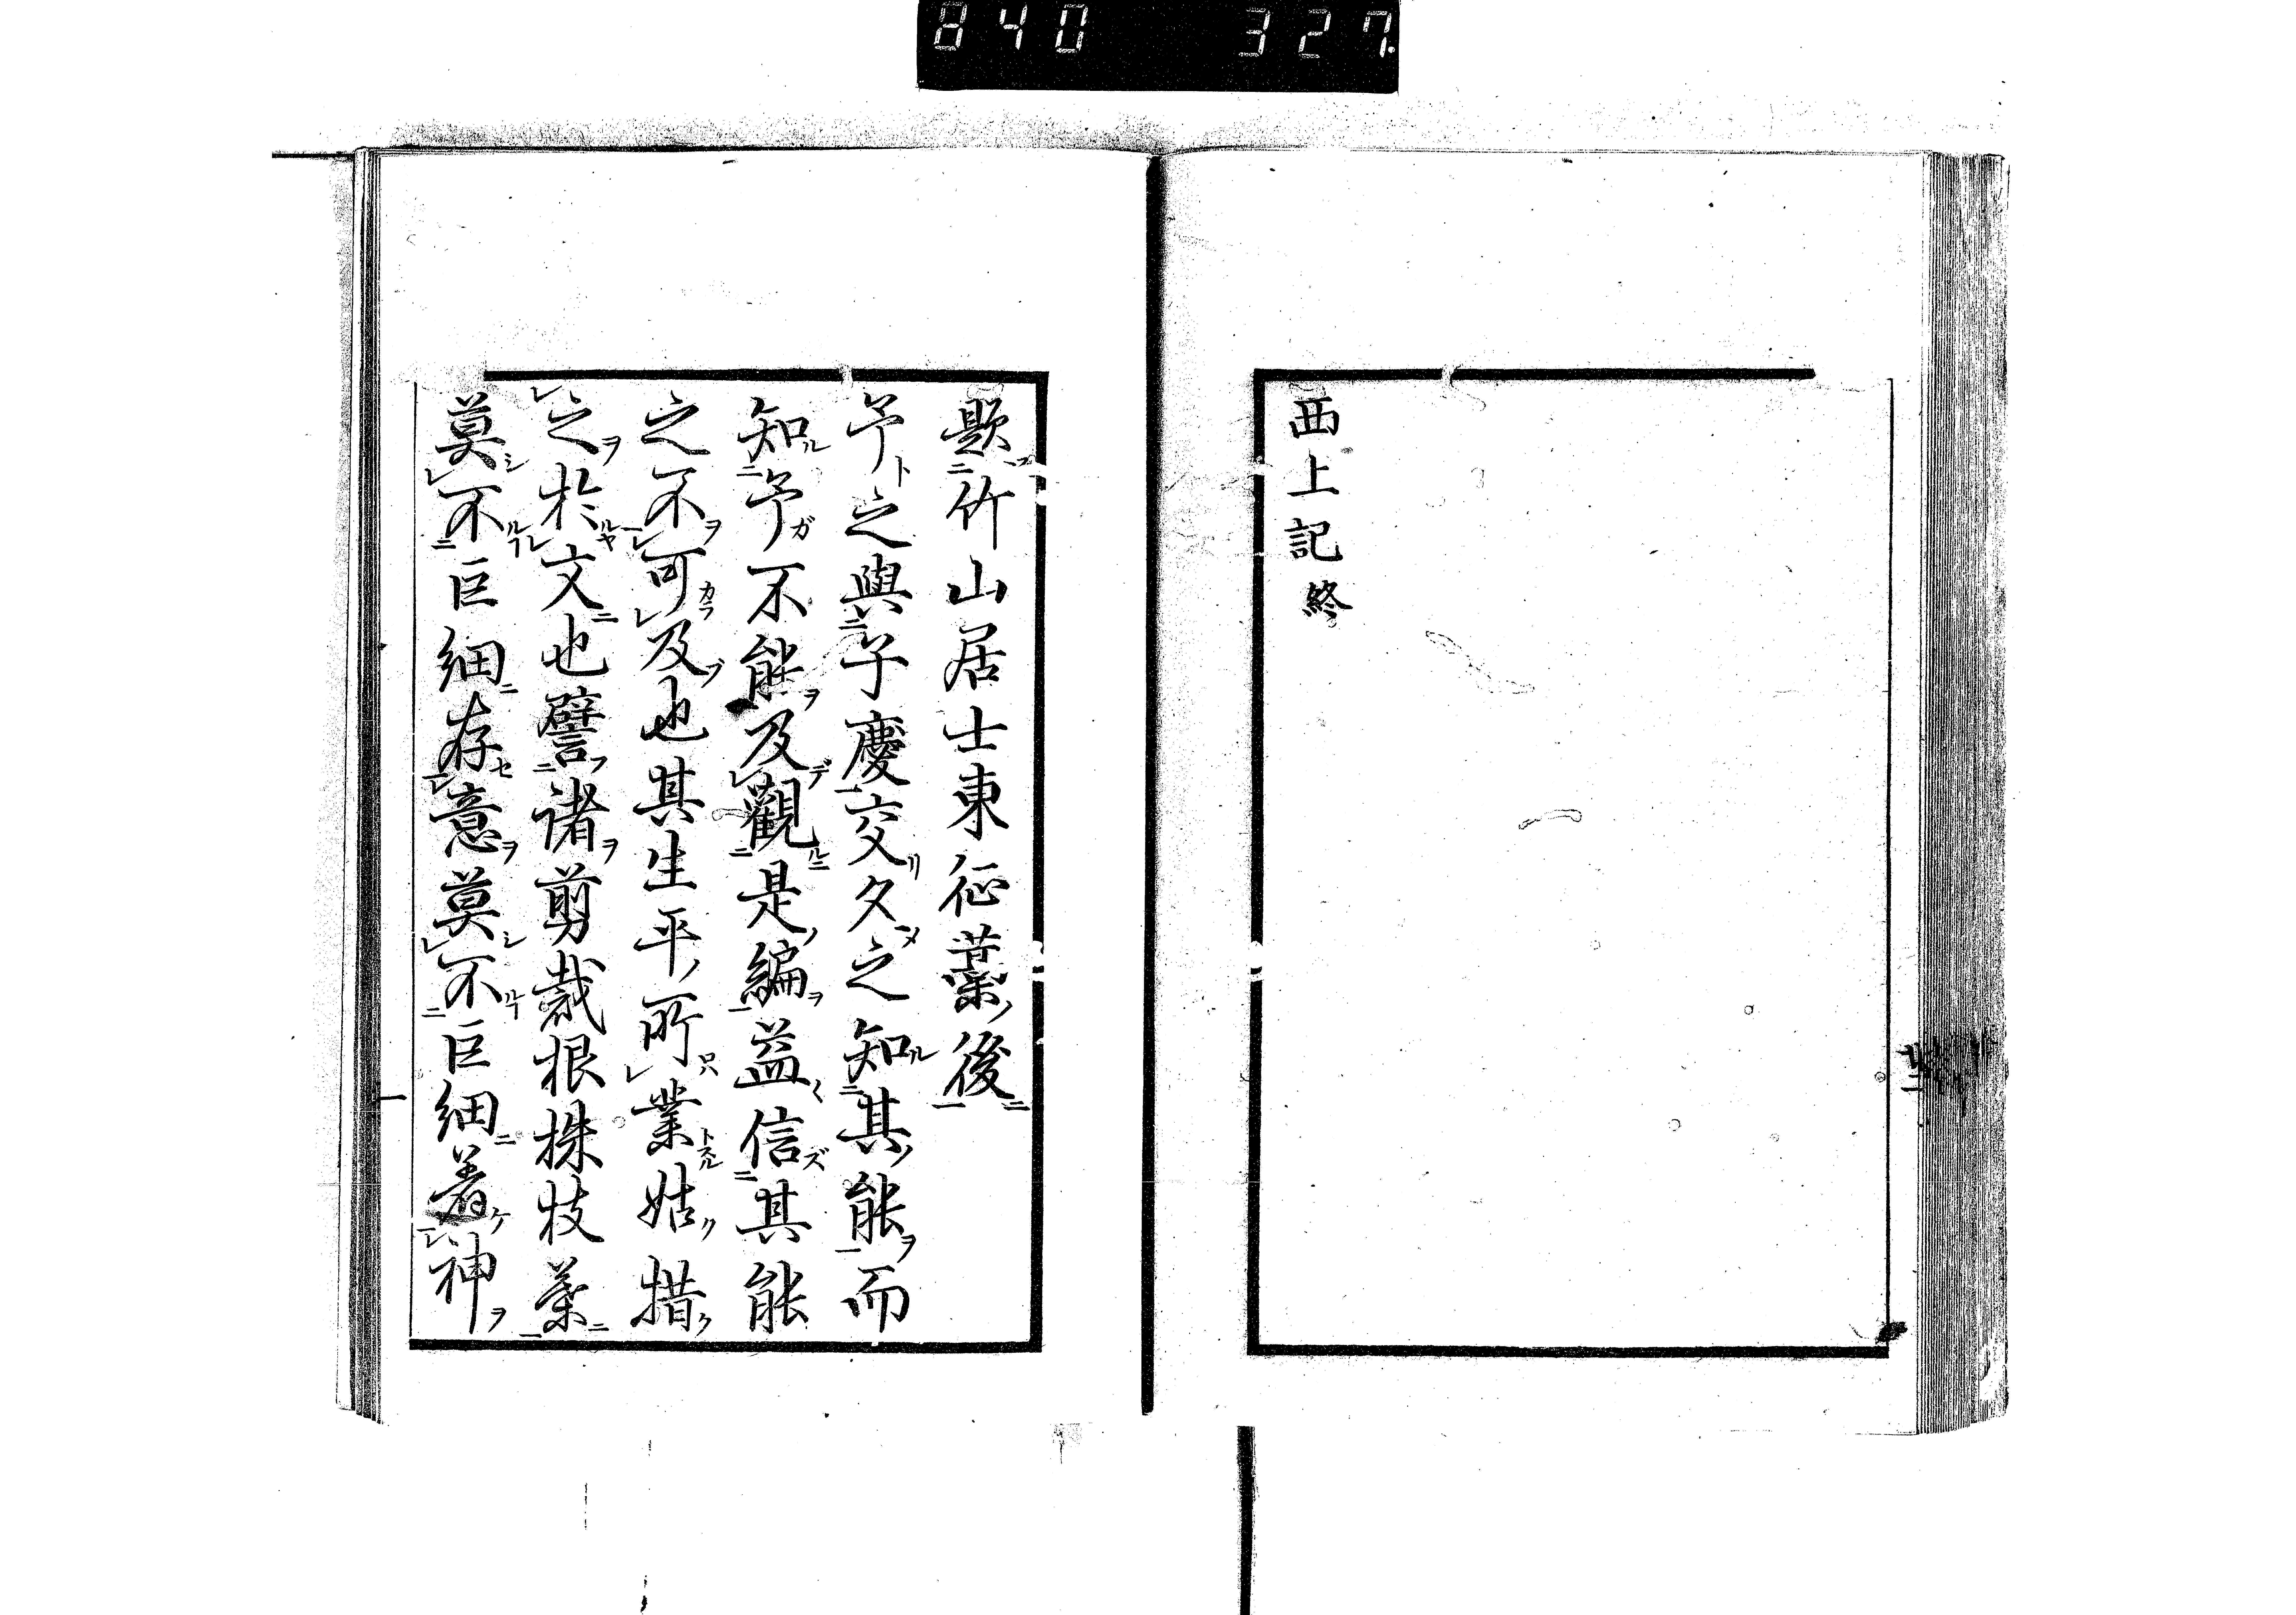 840 327.
西上記終
題竹山居士東征藁後
予之與子慶交久之知其能而
知予不能及觀是編益信其能
之不可及也其生平所業姑措
之於文也譬諸剪裁根株枝葉
莫不巨細存意莫不巨細着神